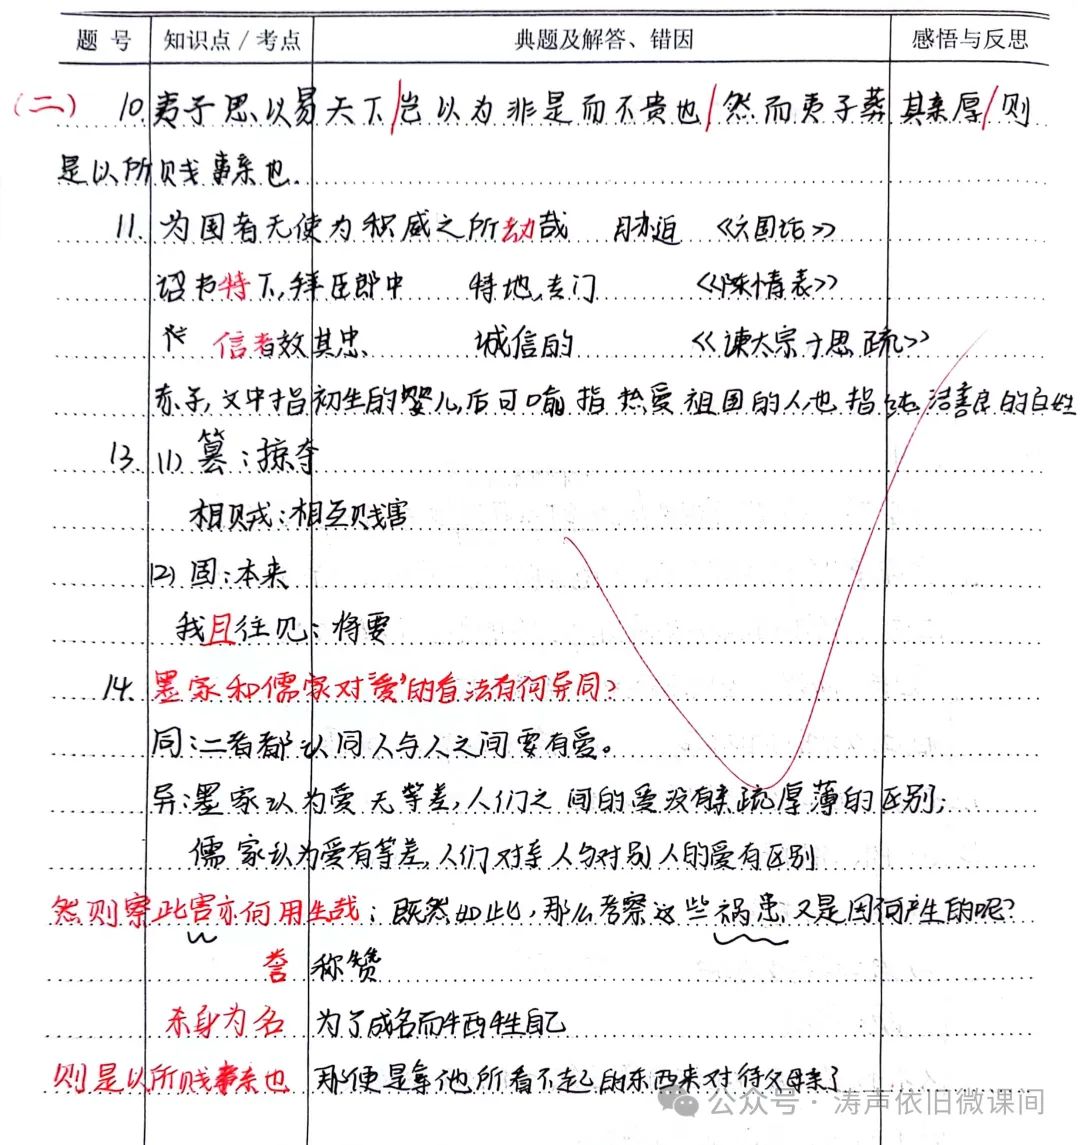 题 号 知识点 / 考点 典题及解答、错因 感悟与反思
(二) 10. 夷子思以易天下/岂以为非是而不贵也/然而夷子葬其亲厚/则
是以所贱事亲也.
11. 为国者无使为积威之所劫哉 胁迫 《六国论》
诏书特下,拜臣郎中 特地,专门 《陈情表》
信者效其忠 诚信的 《谏太宗十思疏》
赤子,文中指初生的婴儿,后可喻指热爱祖国的人也指纯洁善良的百姓
13. (1) 篡:掠夺
相贼:相互贱害
(2) 固:本来
我且往见:将要
14. 墨家和儒家对“爱”的看法有何异同?
同:二者都认同人与人之间要有爱。
异:墨家认为爱无等差,人们之间的爱没有亲疏厚薄的区别;
儒家认为爱有等差,人们对亲人与对别人的爱有区别
然则察此害亦何用生哉:既然如此,那么考察这些祸患又是因何产生的呢?
誉 称赞
杀身为名 为了成名而牺牲自己
则是以所贱事亲也 那便是拿他所看不起的东西来对待父母亲了
公众号·涛声依旧微课间